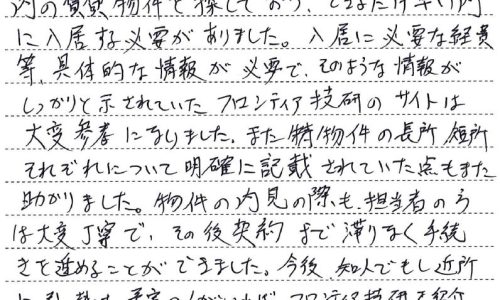 内の賃貸物件を探しており、できるだけ早い内
に入居する必要がありました。入居に必要な経費
等、具体的な情報が必要で、そのような情報が
しっかりと示されていたフロンティア技研のサイトは
大変参考になりました。また物件の長所短所
それぞれについて明確に記載されていた点もまた
助かりました。物件の内見の際も、担当者の方
は大変丁寧で、その後契約まで滞りなく手続
きを進めることができました。今後知人でもし近所